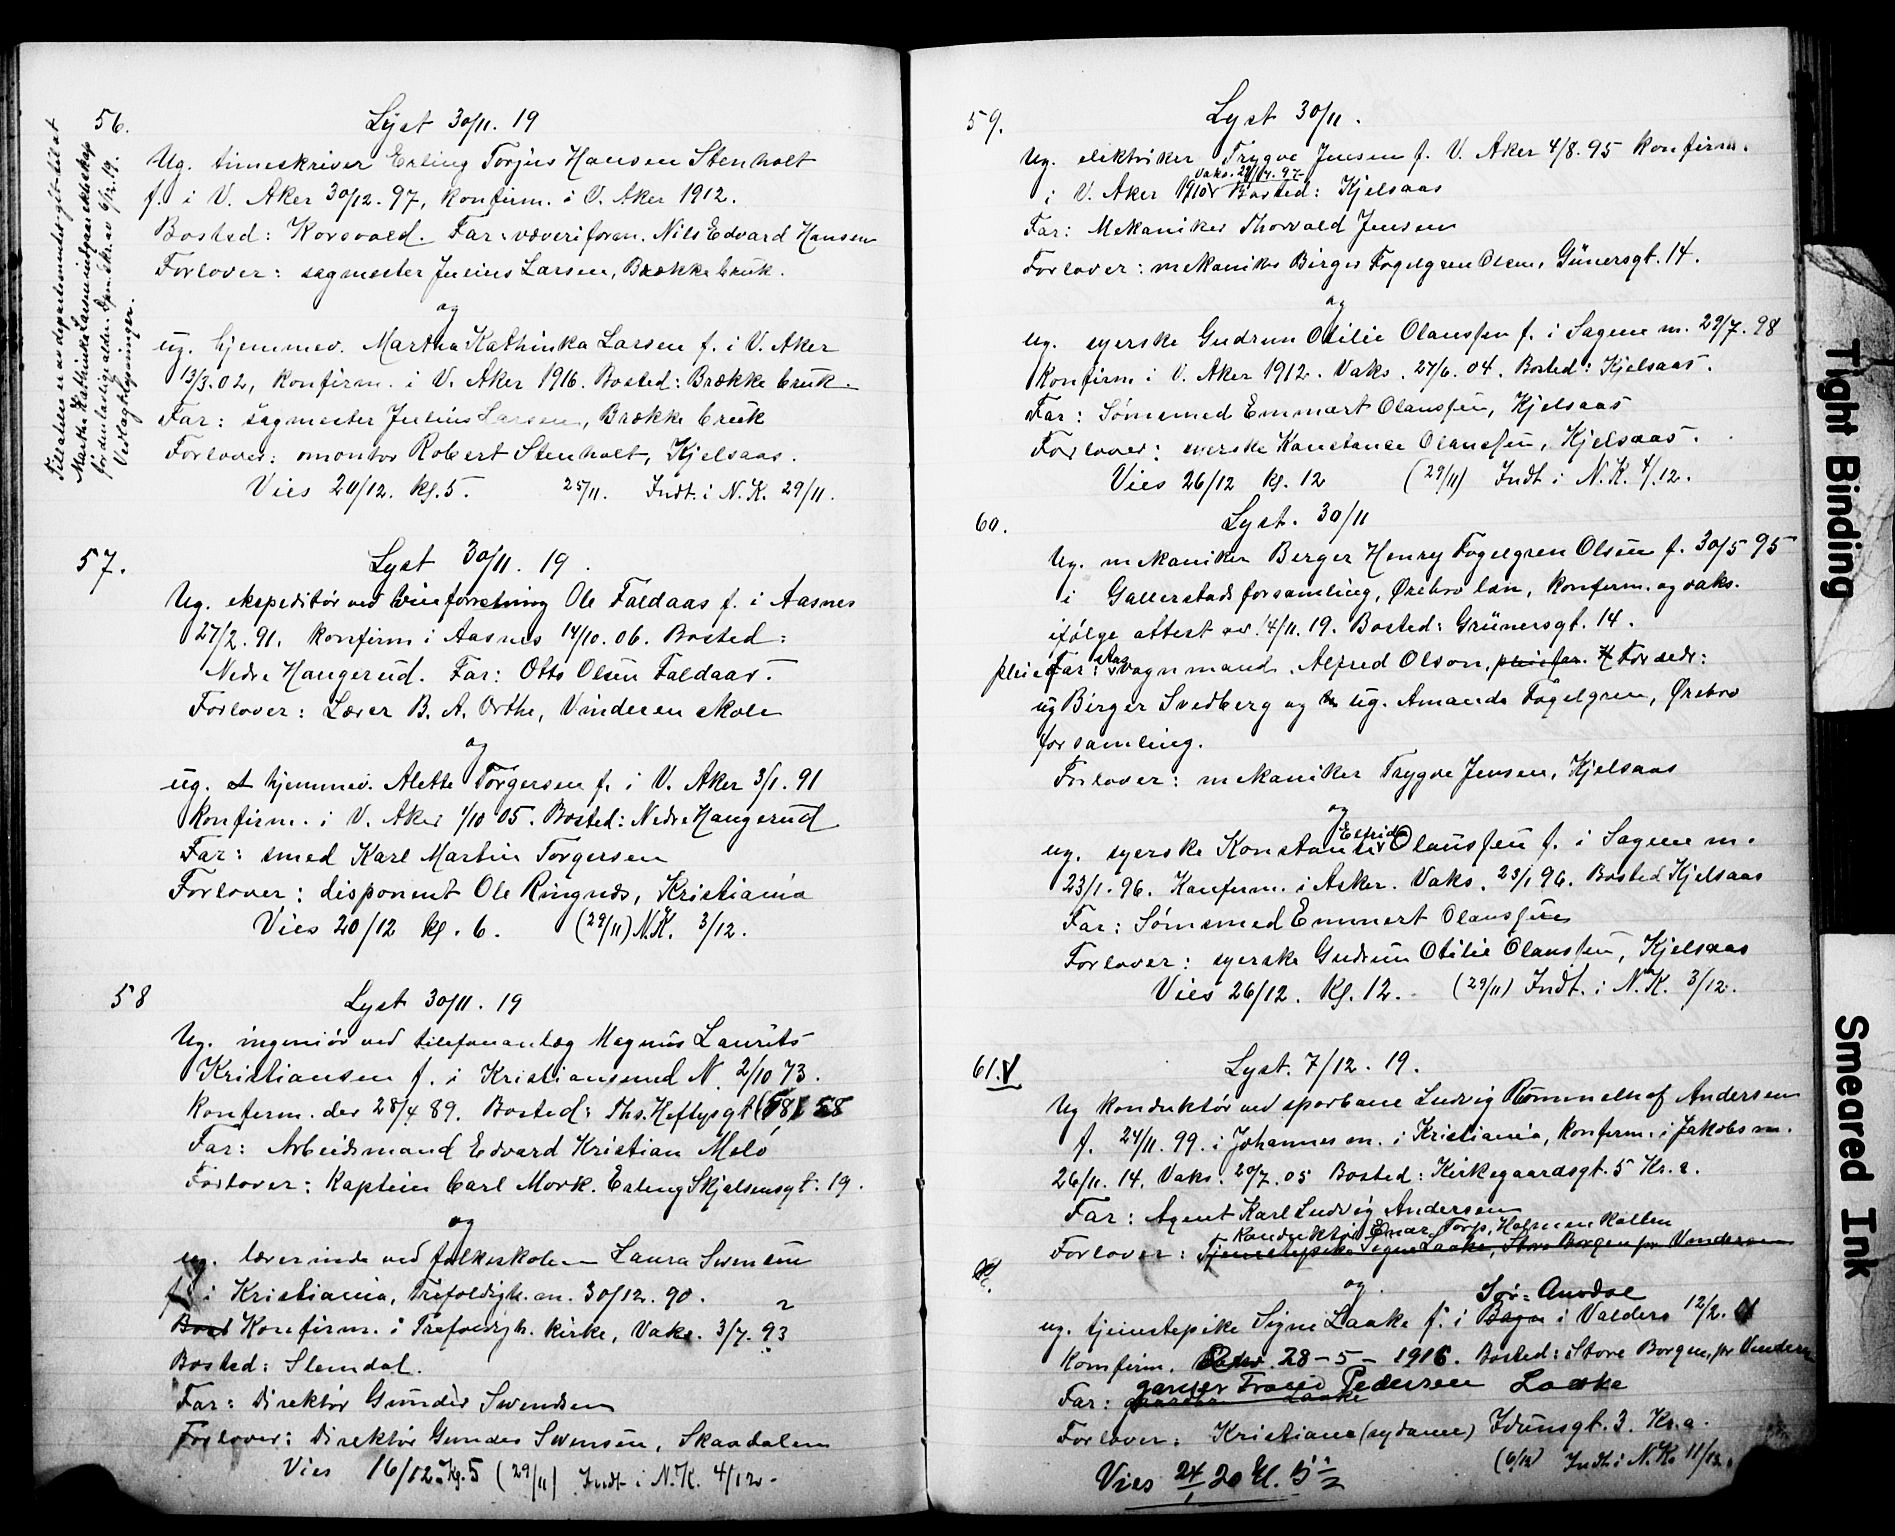 56.
Lyst 30/11. 19
Ug. timeskriver Erling Torjus Hansen Stenholt
f. i V. Aker 30/12. 97, konfirm. i V. Aker 1912.
Bosted: Korsvold. Far: væveriform. Nils Edvard Hansen
Forlover: sagmester Julius Larsen, Brække bruk.
og
ug. hjemmev. Martha Kathinka Larsen f. i V. Aker
13/3. 02, konfirm. i V. Aker 1916. Bosted: Brække bruk.
Far: sagmester Julius Larsen, Brække bruk
Forlover: montør Robert Stenholt, Kjelsaas.
Vies 20/12. kl. 5. 25/11. Indt. i N. K. 29/11.
Tillatelse er av departementet git til at
Martha Kathinka Larsen indgaar ekteskap
før den lovlige alder. Dpm. skr. av 6/12. 19.
Vedlagt lysninger.
57.
Lyst 30/11. 19.
Ug. ekspeditør ved vinforretning Ole Faldaas f. i Aasnes
27/2. 91. konfirm i Aasnes 14/10. 06. Bosted:
Nedre Haugerud. Far: Otto Olsen Faldaas.
Forlover: Lærer B. A. Orthe, Vinderen skole
og
ug. hjemmev. Alette Torgersen f. i V. Aker 3/1. 91
konfirm. i V. Aker 1/10 05. Bosted: Nedre Haugerud
Far: smed Karl Martin Torgersen
Forlover: disponent Ole Ringnæs, Kristiania
Vies 20/12 kl. 6. (29/11) N.K. 3/12.
58
Lyst 30/11. 19
Ug. ingeniør ved telefonanlæg Magnus Laurits
Kristiansen f. i Kristiansund N. 2/10 73.
konferm. der 28/4 89. Bosted: Ths. Heftyesgt (58) 58
Far: Arbeidsmand Edvard Kristian Melø
Forlover: Kaptein Carl Mork. Erling Skjalsonsgt. 19.
og
ug. lærerinde ved folkeskolen Laura Swensen
f. i Kristiania, Trefoldigh. m. 30/12. 90.
Bost Konfirm. i Trefoldigh. kirke, Vaks. 3/7. 93
Bosted: Slemdal.
Far: Direktør Gunder Swendsen
Forlover: Direktør Gunder Swensen, Skaadalen
Vies 16/12. Kl. 5 (29/11) Indt i N. K. 4/12.
59.
Lyst 30/11.
Ug. elektriker Trygve Jensen f. V. Aker 4/8. 95 konfirm.
i V. Aker 1910 Bosted: Kjelsaas
Far: Mekaniker Thorvald Jensen
Forlover: mekaniker Birger Fogelgren Olsen, Günersgt. 14.
og
ug. syerske Gudrun Otilie Olaussen f. i Sagene m. 29/7. 98
konfirm i V. Aker 1912. Vaks. 27/6. 04. Bosted: Kjelsaas.
Far: Sømsmed Emmert Olaussen, Kjelsaas
Forlover: syerske Konstance Olaussen, Kjelsaas.
Vies 26/12 kl. 12 (29/11) Indt i N. K. 4/12.
60.
Lyst. 30/11
Ug. mekaniker Berger Henry Fogelgren Olsen f. 30/5 95
i Gällerstads forsamling, Ørebro län, konferm. og vaks.
ifølge attest av 14/11. 19. Bosted: Grünersgt. 14.
Far: vognmand Alfred Olson, pleiefar. Forældr:
ug Birger Svedberg og ug. Amanda Fogelgren, Ørebro
forsamling.
Forlover: mekaniker Trygve Jensen, Kjelsaas
og
Estride
ug. syerske Konstance Olaussen f. i Sagene m.
23/1. 96. Konferm. i Asker. Vaks. 23/1 96. Bosted Kjelsaas
Far: Sømsmed Emmert Olaussen
Forlover: syerske Gudrun Otilie Olaussen, Kjelsaas
Vies 26/12. Kl. 12. (29/11) Indt. i N. K. 3/12.
61. V
Lyst. 7/12. 19.
Ug konduktør ved sporbane Ludvig Rømmelhof Andersen
f. 24/11. 99. i Johannes m. i Kristiania, konferm. i Jakobs m.
26/11. 14. Vaks. 20/7. 05 Bosted: Kirkegaardsgt. 5 Kr.a.
Far: Agent Karl Ludvig Andersen
Konduktør Einar Torp, Holmenkollen
Forlover: Tjenestepike Signe Laake, Store Borgen pr Vinderen
og Sør-Aurdal
ug. tjenestepike Signe Laake f. i Bagn i Valders 12/2.
Komfirm. 28-5-1916. Bosted: Store Borgen, pr Vinderen
garver Trond Pedersen Laake
Far: gaardbr. Laake
Forlover: Kristiane (sydame) Idunsgt. 3. Kr.a.
(6/12) Indt i N. K. 11/12.
Vies 24/1 20 Kl. 5 1/2
Tight Binding
Smeared Ink